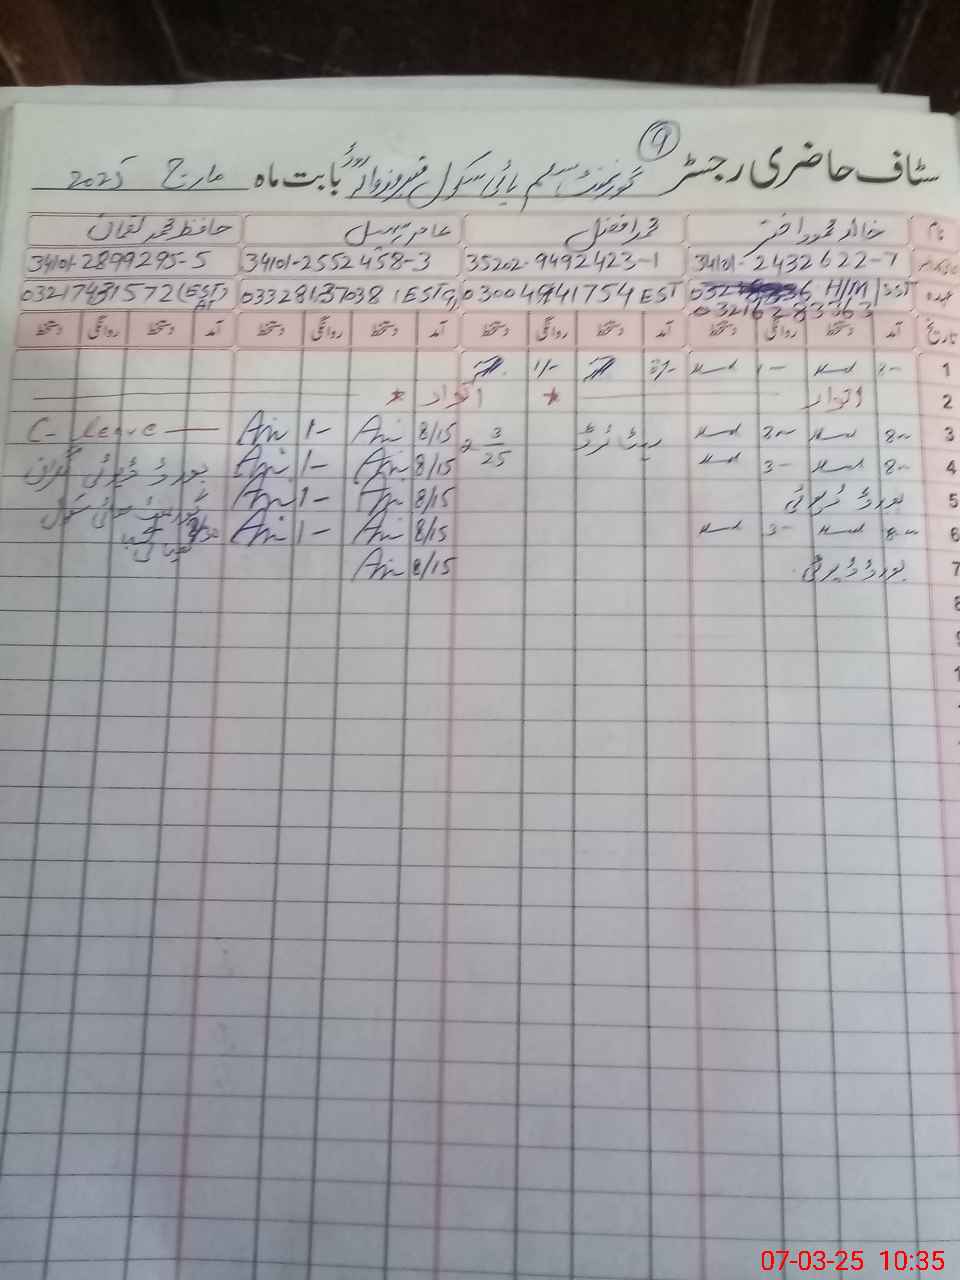 9
سٹاف حاضری رجسٹر گورنمنٹ مسلم ہائی سکول فیروزوالہ بابت ماہ مارچ 2025
نام خالد محمود اختر محمد افضل عامر سہیل حافظ محمد لقمان
34101-2432622-7 35202-9492423-1 34101-2552458-3 34101-2899295-5
عہدہ H/M SST 03004941754 EST 03328137038 (EST) 03217431572 (EST)
03216283363
تاریخ آمد دستخط روانگی دستخط آمد دستخط روانگی دستخط آمد دستخط روانگی دستخط آمد دستخط روانگی دستخط
1 8- 1- 1/-
2 اتوار اتوار
3 8- 3- ریٹائرڈ 3/25 8/15 1- C-leave
4 8- 3- 8/15 1- بورڈ ڈیوٹی نگران
5 بورڈ ڈیوٹی 8/15 1- گورنمنٹ ہائی سکول
6 8- 3- 8/15 1-
7 بورڈ ڈیوٹی 8/15
8
9
07-03-25 10:35